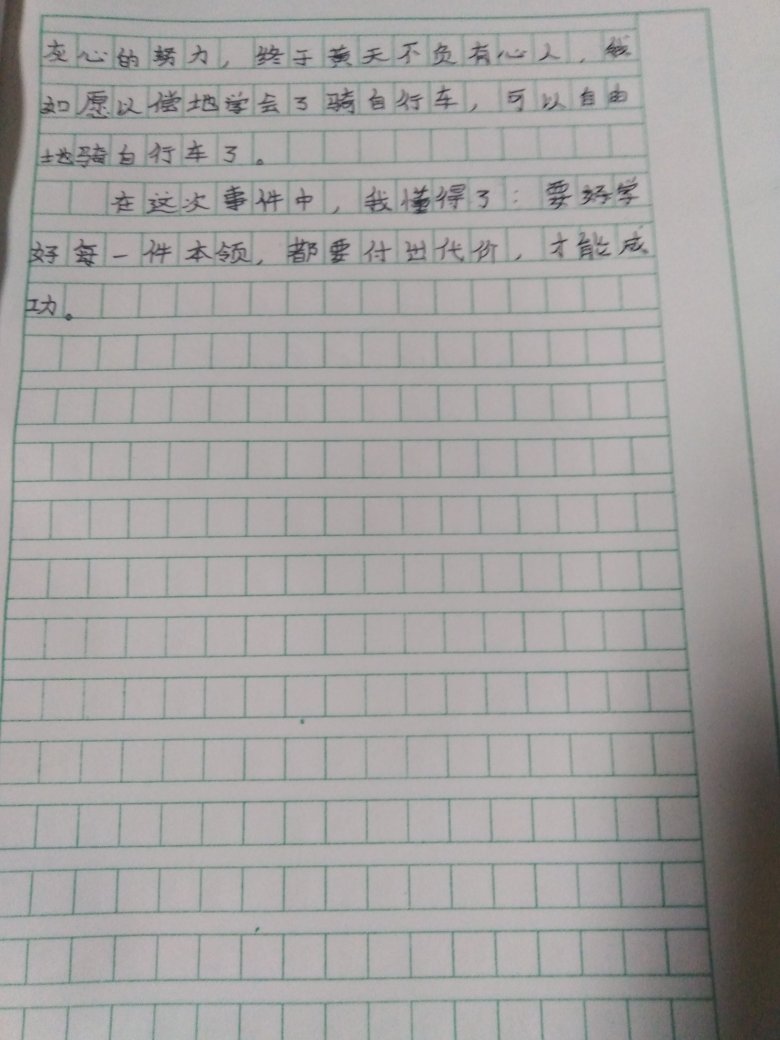 灰心的努力，终于黄天不负有心人，
如愿以偿地学会了骑自行车，可以自由
地骑自行车了。
在这次事件中，我懂得了：要好学
好每一件本领，都要付出代价，才能成
功。